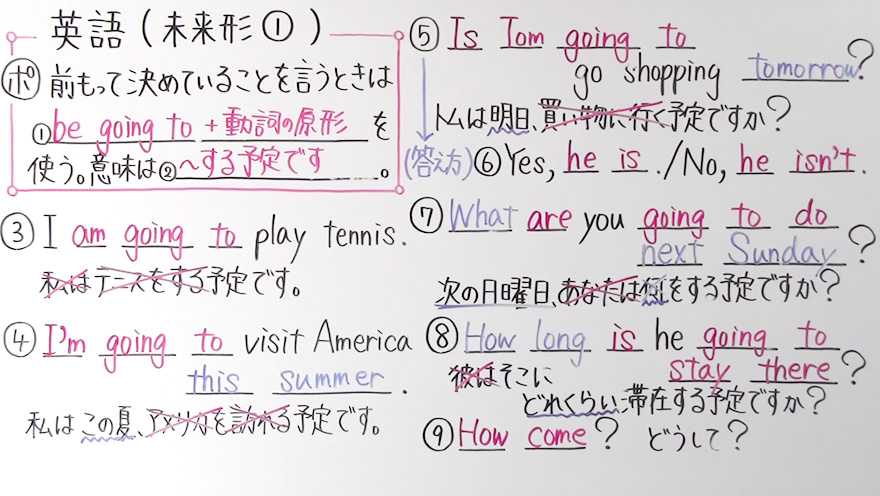 英語(未来形①)
ポ 前もって決めていることを言うときは
①be going to +動詞の原形 を
使う。意味は②〜する予定です。
③ I am going to play tennis.
私はテニスをする予定です。
④ I'm going to visit America
this summer.
私はこの夏、アメリカを訪れる予定です。
⑤ Is Tom going to
go shopping tomorrow?
トムは明日、買い物に行く予定ですか?
(答え方)⑥Yes, he is./No, he isn't.
⑦ What are you going to do
next Sunday?
次の日曜日、あなたは何をする予定ですか?
⑧ How long is he going to
stay there?
彼はそこに
どれくらい滞在する予定ですか?
⑨ How come? どうして?